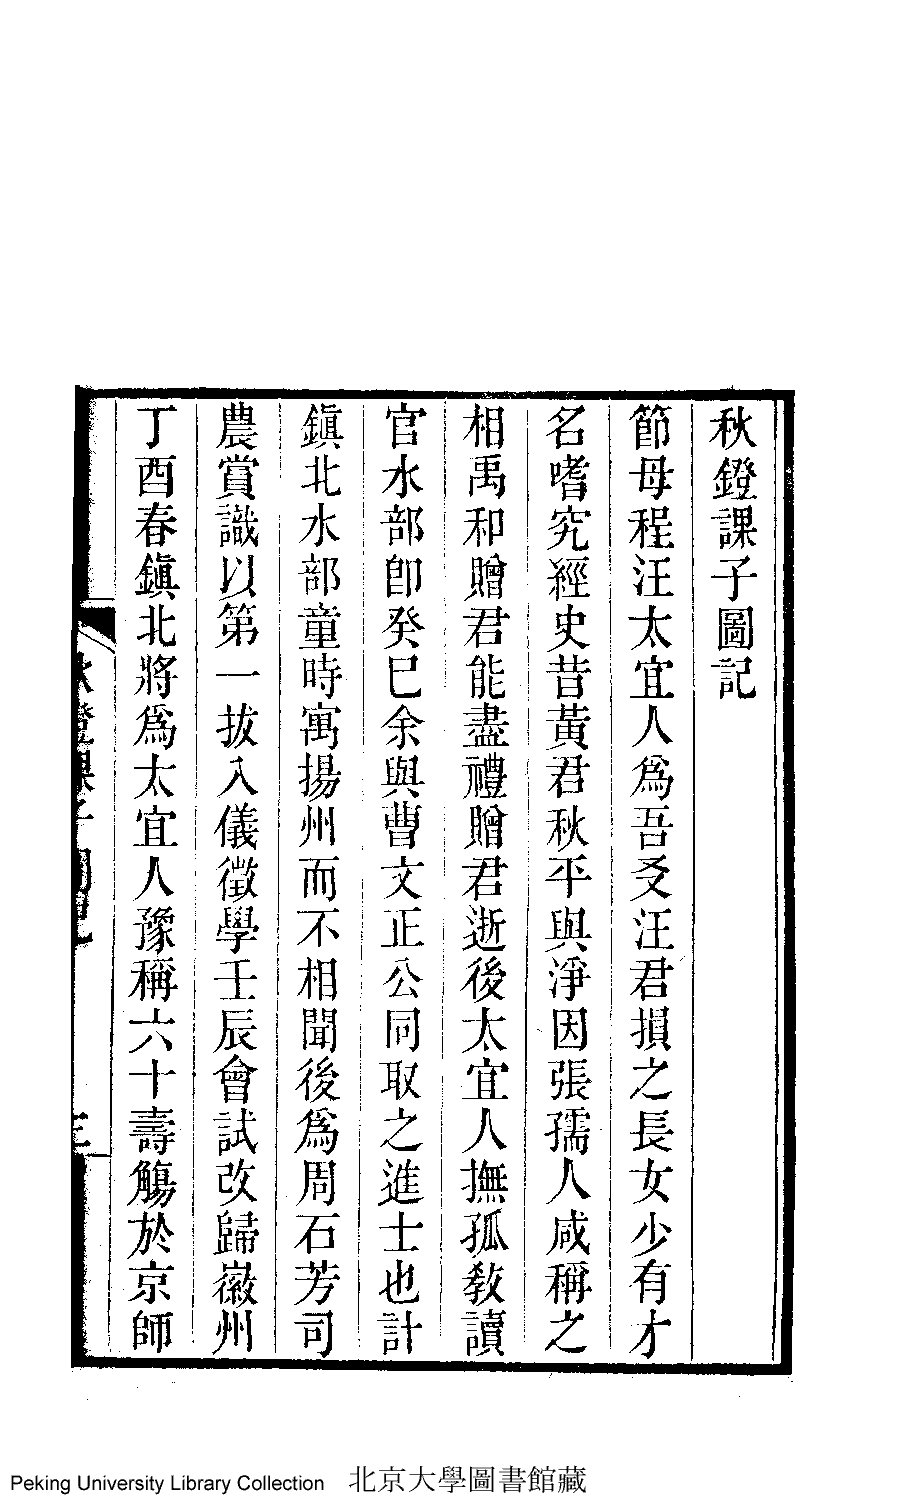 秋鐙課子圖記
節母程汪太宜人爲吾友汪君損之長女少有才
名嗜究經史昔黃君秋平與淨因張孺人咸稱之
相禹和贈君能盡禮贈君逝後太宜人撫孤敎讀
官水部卽癸巳余與曹文正公同取之進士也計
鎭北水部童時寓揚州而不相聞後爲周石芳司
農賞識以第一拔入儀徵學壬辰會試改歸徽州
丁酉春鎭北將爲太宜人豫稱六十壽觴於京師
秋鐙課子圖記
三
Peking University Library Collection 北京大學圖書館藏